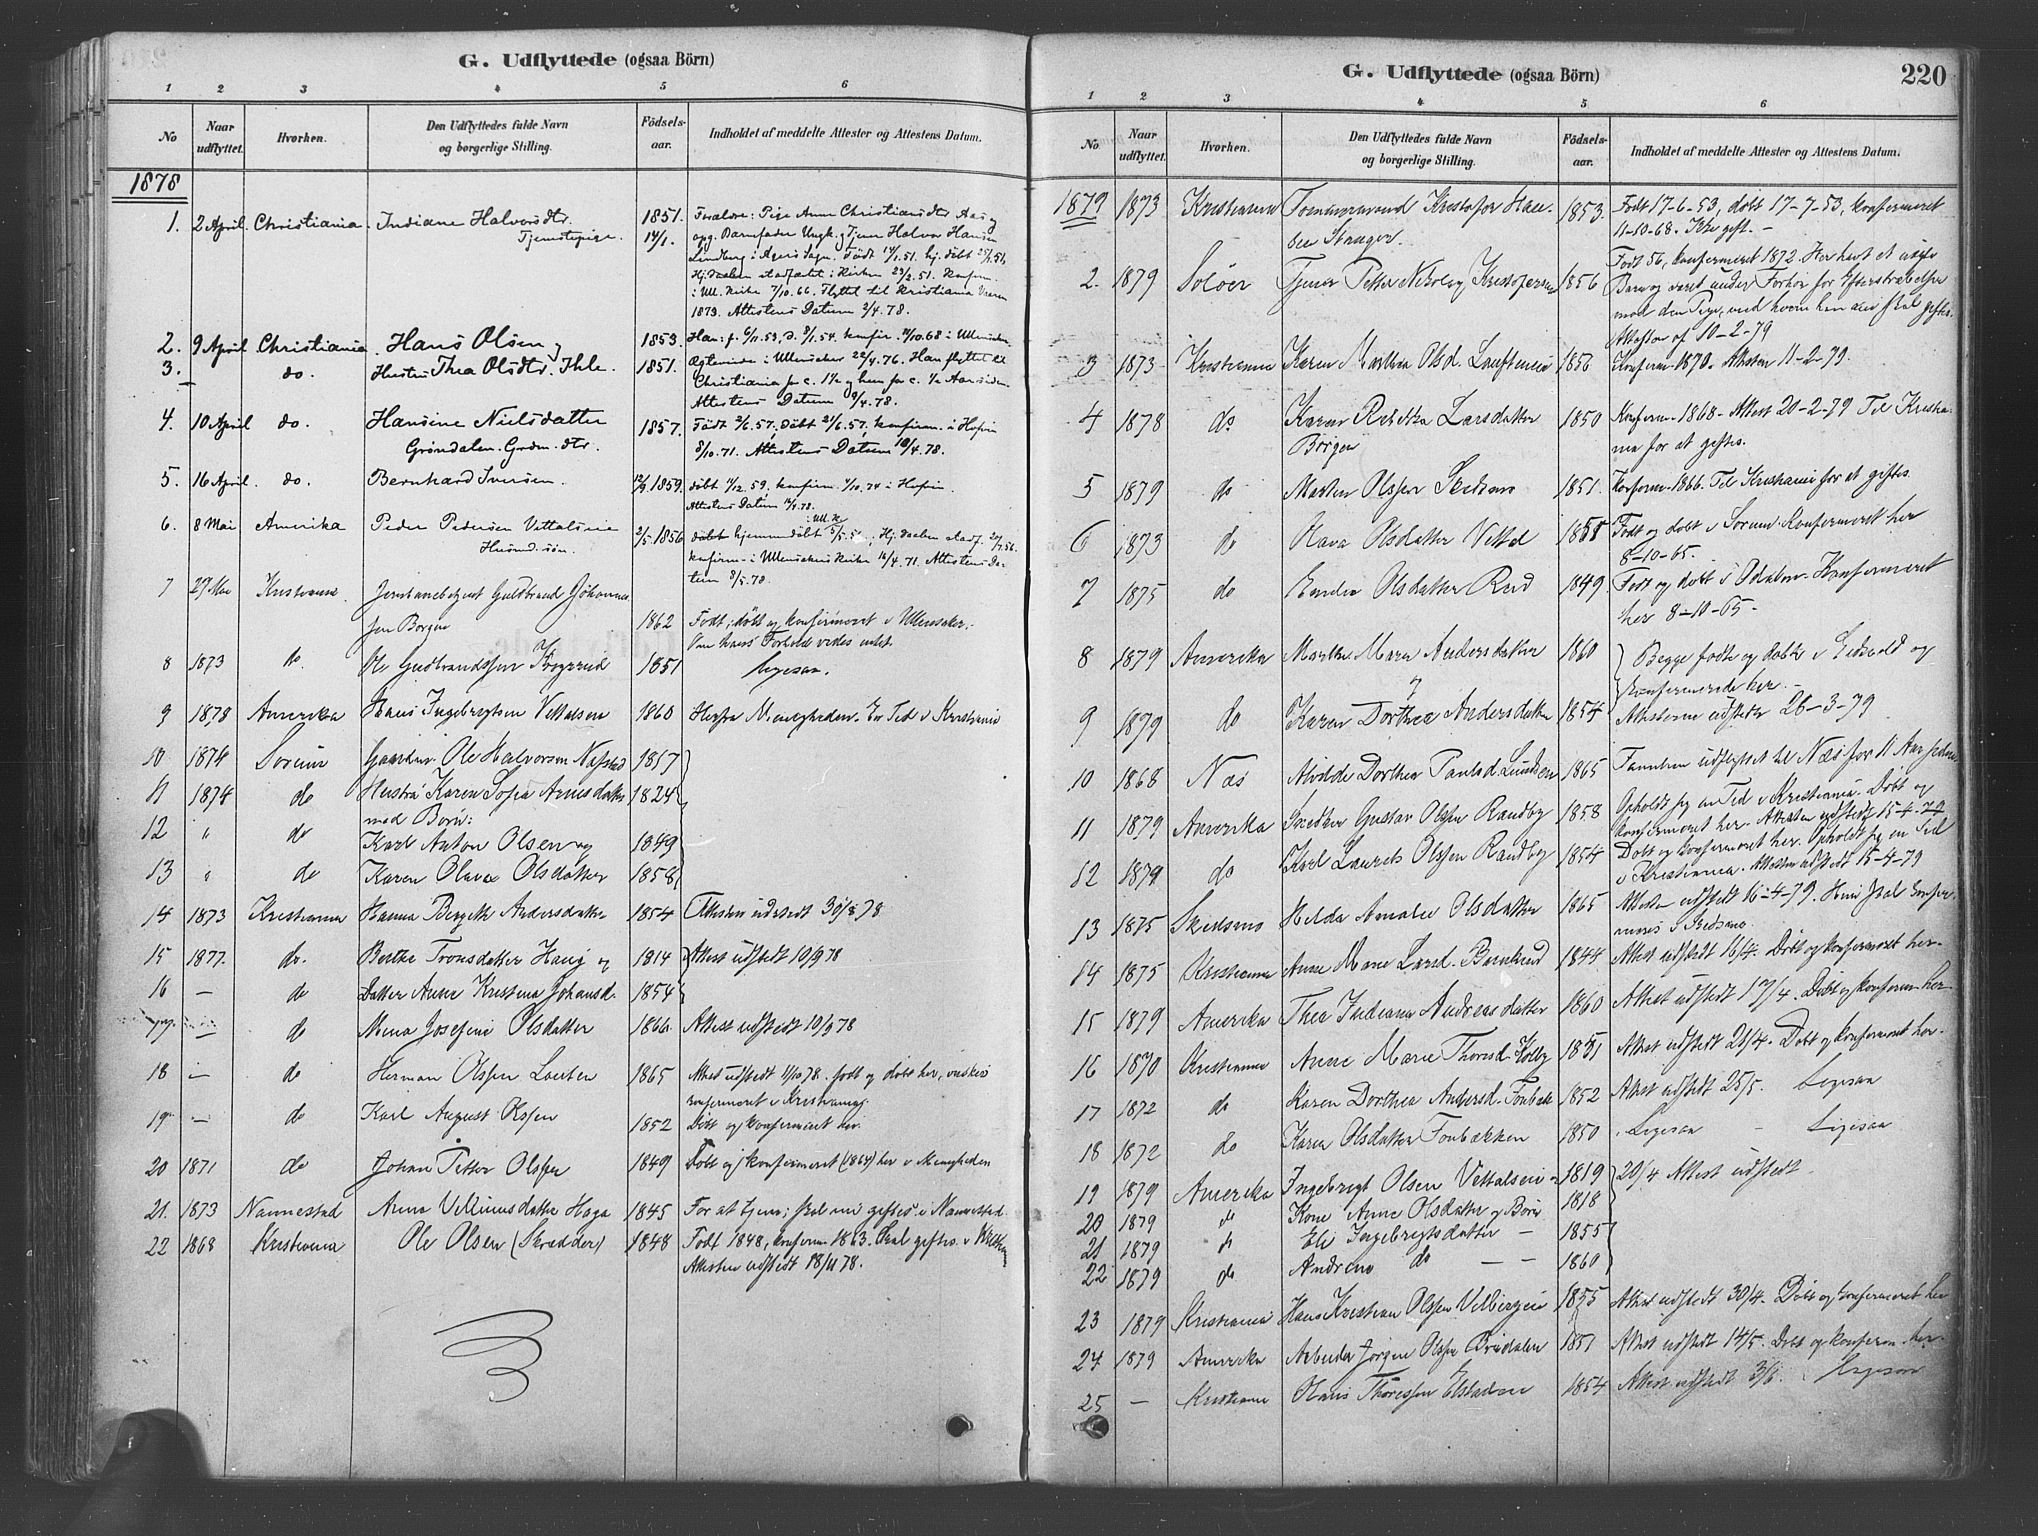 G. Udflyttede (ogsaa Börn)
1 2 3 4 5 6
No
Naar udflyttet.
Hvorhen.
Den Udflyttedes fulde Navn og borgerlige Stilling.
Födsels-aar.
Indholdet af meddelte Attester og Attestens Datum.
1878
1. 2 April Christiania. Indiane Halvorsdtr. 1851. Forældre: Pige Anne Christiansdtr Aas og
Tjenestepige. 14/1. opg. Barnefader Ungk. og Tjen Halvor Hansen
Lindberg i Agers Sogn. Født 14/1 51. hj. døbt
i Ull. Kirke 7/10.66. Flyttet til Kristiania Vaaren
1873. Attestens Datum 2/4.78.
2. 9 April Christiania. Hans Olsen og 1853. Han: f. 6/11.53, d. 8/1.54. konfir. 11/10.68 i Ullensaker
3. do. Hustru Thea Olsdtr. Ihle. 1851. Ægteviede i Ullensaker 22/4.76. Han flyttet til
Christiania for c. 1½ og hun for c. ½ Aar siden
Attestens Datum 9/4.78.
4. 10 April do. Hansine Nielsdatter 1857. Født 2/6.57. Døbt 21/6.57. konfirm. i Hofin
Grøndalen. Grdm. dtr. 8/10.71. Attestens Datum 10/4.78.
5. 16 April. do. Bernhard Iversen. 12/9 1859. døbt 4/12.59. konfirm. 4/10.74 i Hofin.
Attestens Datum 16/4.78.
6. 8 Mai Amerika Peder Pedersen Vettalseie 2/5 1856 hjemmedøbt 5/5.56; Hj. daaben stadf. 27/7.56.
Husmd. søn. konfirm. i Ullensakers Kirke 16/4.71. Attestens Da-
tum 8/5.78.
7 29 Mai Kristiania. Jernbanebetjent Guldbrand Johannes
sen Borgen 1862 Født, døbt og konfirmeret i Ullensaker.
Om hans Forhold vides intet.
8 1873 do. Ole Gudbrandssen 1851 Ligesaa.
9 1878 Amerika Hans Ingebregtsen Vettalsen 1860 Herfra Menigheden. En Tid i Kristiania
10 1874 Sorum Gaardbr. Ole Halvorsen Nafstad 1817
11 1874 do Hustru Karen Sofia Arnesdatter 1824
med Børn:
12 " do Karl Anton Olsen og 1849
13 " do Karen Olava Olsdatter 1858
14 1873 Kristiania Hanna Bergithe Andersdatter 1854 Attesten udstedt 30/8 78
15 1877. do. Berthe Tronsdatter Haug og 1814 Attest udstedt 10/9 78
16 — do Datter Anne Kristina Johansd. 1854
17. — do Mina Josefine Olsdatter 1866 Attest udstedt 10/9 78
18 — do Herman Olssen Lauten 1865 Attest udstedt 11/10 78. født og døbt her, ønskes
konfirmeret i Kristiania.
19 — do Karl August Olssen 1852 Døbt og konfirmeret her.
20 1871 do Johan Petter Olssen 1849 Døbt og konfirmeret (1864) her i Menigheden
21. 1873 Nannestad Anna Villumsdatter Haga 1845 For at tjene; skal nu giftes i Nannestad
22 1868 Kristiania Ole Olsen (Skrædder) 1848 Født 1848, konfirm. 1863. Skal giftes i
Attesten udstedt 18/11 78.
G. Udflyttede (ogsaa Börn)
220
1 2 3 4 5 6
No.
Naar udflyttet.
Hvorhen.
Den Udflyttedes fulde Navn og borgerlige Stilling.
Födsels-aar.
Indholdet af meddelte Attester og Attestens Datum.
1879 1873 Kristiania Tommermand Kristofer 1853. Født 17-6-53, døbt 17-7-53, konfirmeret
Stanger. 11-10-68. Ikke gift. —
2. 1879 Soløer Tjener Petter Nikolay Kristofersen 1856 Født 56, konfirmeret 1872. Har havt et uægte
Barn og været under Forhør for Efterstræbelse
mod den Pige, med hvem han den skal giftes.
Attesten af 10-2-79
3 1873 Kristiania Karen Marthea Olsd. 1856 Konfirm. 1870. Attesten 11-2-79.
4 1878 do Karen Rebekka Larsdatter 1850 Konfirm. 1868. Attest 20-2-79 Til Kristia-
Børgen nia for at giftes.
5 1879 do Marten Olssen Skedsmo 1851. Konfirm. 1866. Til Kristiania for at giftes.
6 1873 do Olava Olsdatter Vettal 1851 Født og døbt i Sorum. Konfirmeret her
8-10-65.
7 1875 do Olsdatter 1849. Født og døbt i Odalen. Konfirmeret
her 8-10-65.
8 1879 Amerika Marthe Maria Andersdatter 1860 Begge fødte og døbte i Eidsvold og
og konfirmerede her. —
9 1879 do Karen Dorthea Andersdatter 1854 Attesterne udstedte 26-3-79
10 1868 Næs Alvilde Dorthea Paulsd. 1865 Familien udflyttet til Næs for 11 Aar siden
11 1879 Amerika Snedker Gustav Olssen Randby 1858 Opholdt sig en Tid i Kristiania. Døbt og
konfirmeret her. Attesten udstedt 15-4-79
12 1879 do Karl Laurits Olssen Randby 1854 Døbt og konfirmeret her. Opholdt sig en Tid
i Kristiania. Attesten udstedt 15-4-79
13 1875 Skedsmo Hilda Amalie Olsdatter 1865 Attest udstedt 16-4-79. Hun skal konfir-
meres i Skedsmo.
14 1875 Kristiania Anne Marie Larsd. 1844 Attest udstedt 16/4. Døbt og konfirmeret her.
15 1879 Amerika Thea Indiana Andreasdatter 1860 Attest udstedt 17/4. Døbt og konfirm. her.
16 1870 Kristiania Anne Marie Thorsd. Kolby 1851 Attest udstedt 21/4. Døbt og konfirmeret her.
17 1872 do Karen Dorthea Andersd. Fonbæk 1852 Attest udstedt 25/5. Ligesaa
18 1872 do Karen Olsdatter Fonbækken 1850 Ligesaa — Ligesaa
19 1879 Amerika Ingebregt Olsen Vettalseie 1819 20/4 Attest udstedt.
20 1879 do Kone Anne Olsdatter og Børn 1818
21 1879 do Eli Ingebregtsdatter — 1855
22 1879 do Andrine do — — 1860
23 1879 Kristiania Hans Kristian Olssen 1855 Attest udstedt 30/4. Døbt og konfirmeret her
24 1879 Amerika Arbeider Jørgen Olssen 1857 Attest udstedt 14/5. Døbt og konfirm. her.
25 — Kristiania Hans Thoressen 1854 Attest udstedt 3/6. Ligesaa